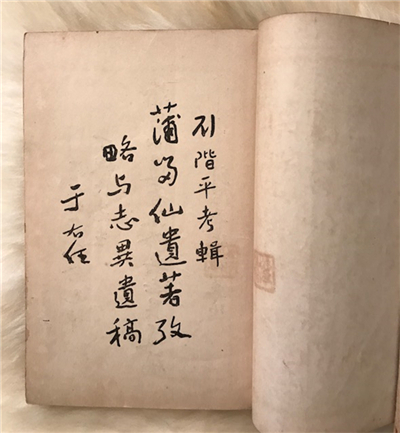 刘階平考輯
蒲留仙遺著攷
略与志異遺稿
于右任